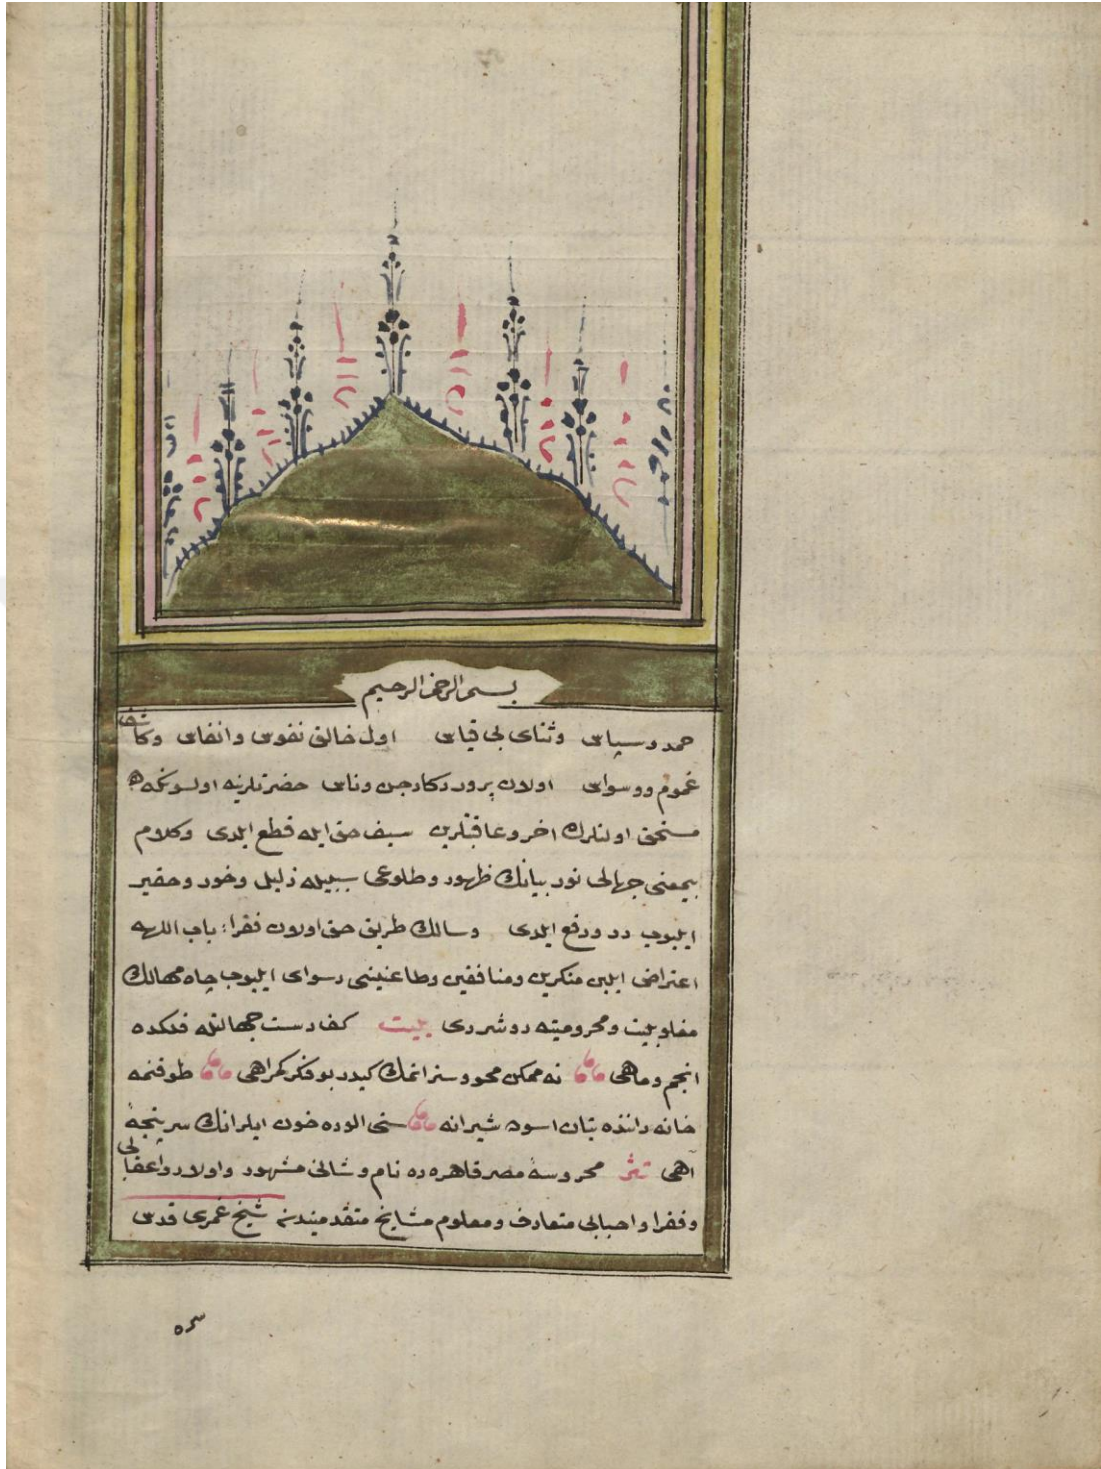 بسم الله الرحمن الرحيم
حمد و سپاس و ثنای بی قیاس اول خالق نفوس وانفاس وکاشف
غموم ووسواس اولان پروردکار جن وناس حضرتلرینه اولسونکه
مستحق اولنلرك اخر وعاقبتلرین سیف حق ایله قطع ایلدی وکلام
بیمعنی جهالی نور بیانك ظهور وطلوعی سببیله ذلیل وخور وحقیر
ایلیوب رد ودفع ایلدی وسالك طریق حق اولان فقراء باب اللهه
اعتراض ایلین منکرین ومنافقین وطاعنینی رسوای ایلیوب چاه مهالك
مغلوبیت ومحرومیته دوشردی بیت کف دست جهالتله فلکده
انجم وماهی نه ممکن محو وستر اتمك کیدر بو فکر کمراهی طوقنمه
خانه داننده یتان اسوده شیرانه سنی الوده خون ایلر انك سرپنجهٔ
آهی نثر محروسهٔ مصر قاهره ده نام وشانی مشهور واولاد واعقابی
وفقرا واحبابی متعارف ومعلوم مشایخ متقدمیندن شیخ غمری قدس
سره